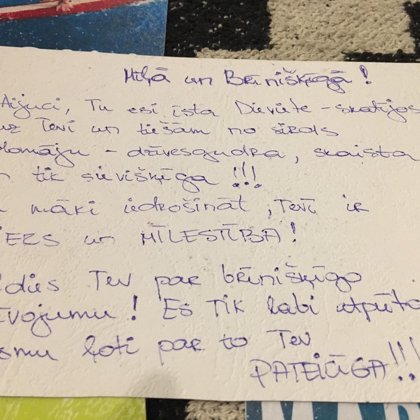 Mīļā un Brīnišķīgā!
Aijuci, Tu esi īsta Dieviete - skatījos
uz Tevi un tiešām no sirds
domāju - dzīvesgudra, skaista
n tik sievišķīga !!!
māki iedrošināt, Tevī ir
IERS un MĪLESTĪBA!
ldies Tev par brīnišķīgo
ēvojumu! Es TIK labi atpūto
smu ļoti par to Tev
PATEICĪGA!!!